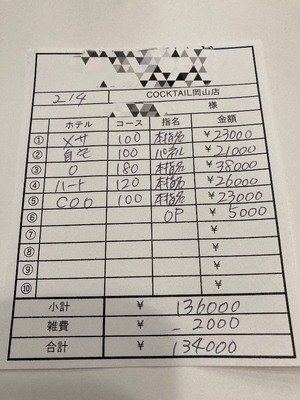 214 COCKTAIL岡山店
様
ホテル コース 指名 金額
① メサ 100 本指名 ¥23000
② 自宅 100 パネル ¥21000
③ O 180 本指名 ¥38000
④ ハート 120 本指名 ¥26000
⑤ COO 100 本指名 ¥23000
⑥ OP ¥5000
⑦ ¥
⑧ ¥
⑨ ¥
⑩ ¥
小計 ¥ 136000
雑費 ¥ -2000
合計 ¥ 134000